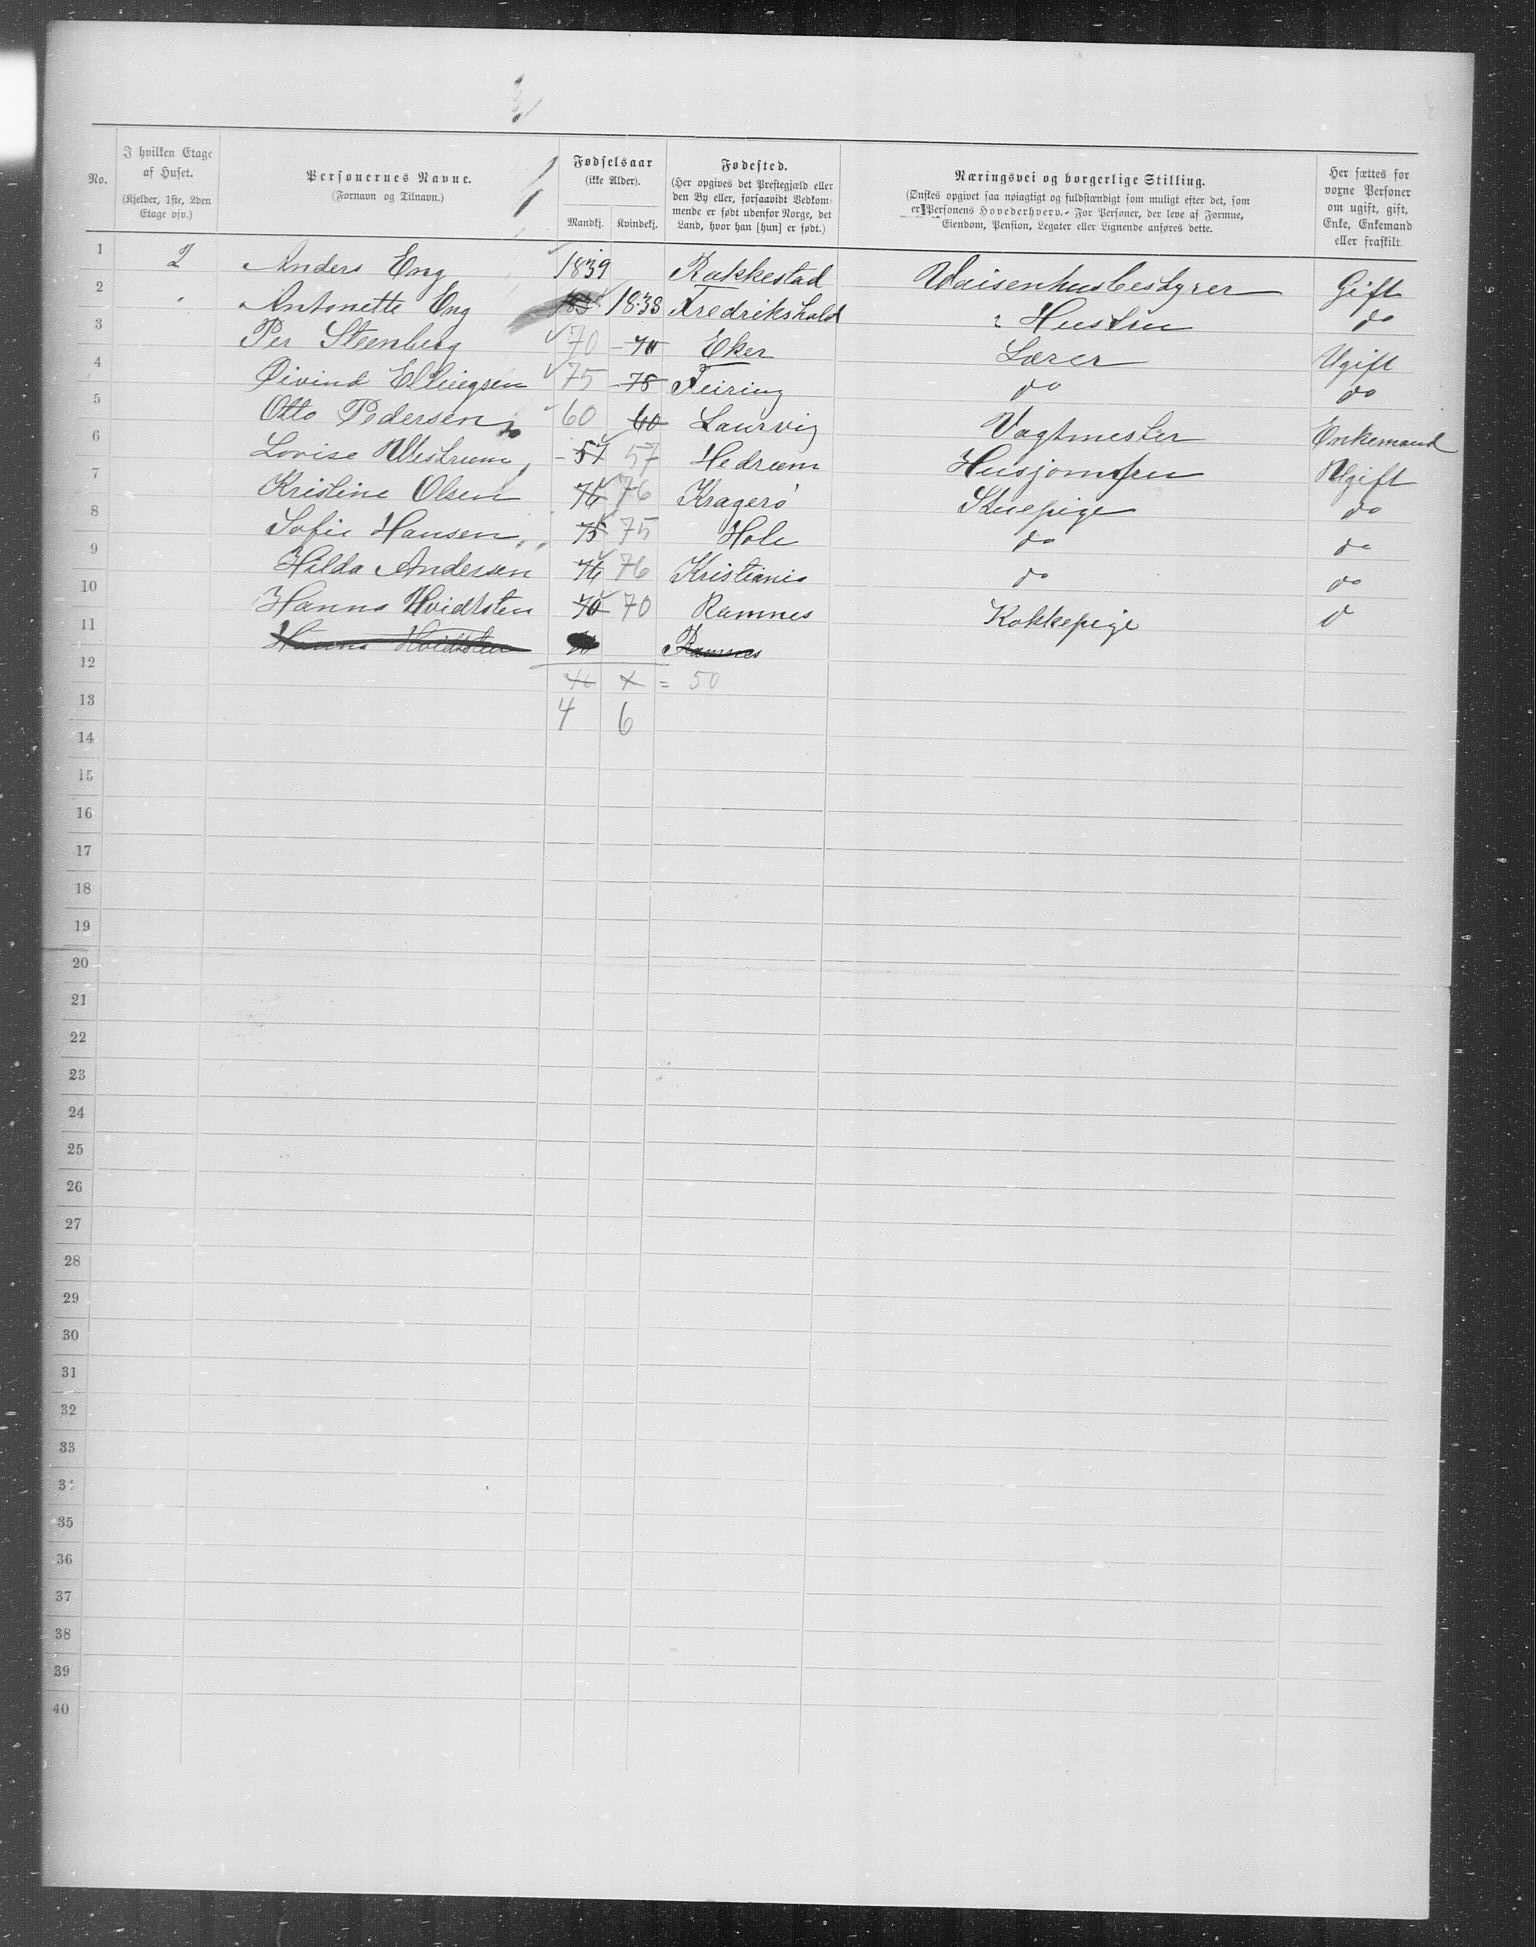 No. I hvilken Etage af Huset. (Kjelder, 1ste, 2den Etage osv.) Personernes Navne. (Fornavn og Tilnavn.) Fødselsaar (ikke Alder). Mandkj. Kvindekj. Fødested. (Her opgives det Prestegjæld eller den By eller, forsaavidt Vedkommende er født udenfor Norge, det Land, hvor han [hun] er født.) Næringsvei og borgerlige Stilling. (Ønskes opgivet saa nøiagtigt og fuldstændigt som muligt efter det, som er Personens Hovederhverv. - For Personer, der leve af Formue, Eiendom, Pension, Legater eller Lignende anføres dette. Her sættes for voxne Personer om ugift, gift, Enke, Enkemand eller fraskilt.
1 2 Anders Eng 1839 Rakkestad Waisenhusbestyrer Gift
2 Antonette Eng 183 1838 Fredrikshald Hustru do
3 Per Steenberg 70 70 Eker Lærer Ugift
4 Øivind Ellingsen 75 75 Feiring do do
5 Otto Pedersen 60 60 Laurvig Vagtmester Enkemand
6 Lovise Westrum 57 57 Hedrum Husjomfru Ugift
7 Kristine Olsen 76 76 Kragerö Stuepige do
8 Sofie Hansen 75 75 Hole do do
9 Hilda Andersen 76 76 Kristiania do do
10 Hanna Hvidtsten 70 70 Ramnes Kokkepige d
11 Hanna Hvidtsten Ramnes
12 = 50
13 4 6
14
15
16
17
18
19
20
21
22
23
24
25
26
27
28
29
30
31
32
33
34
35
36
37
38
39
40